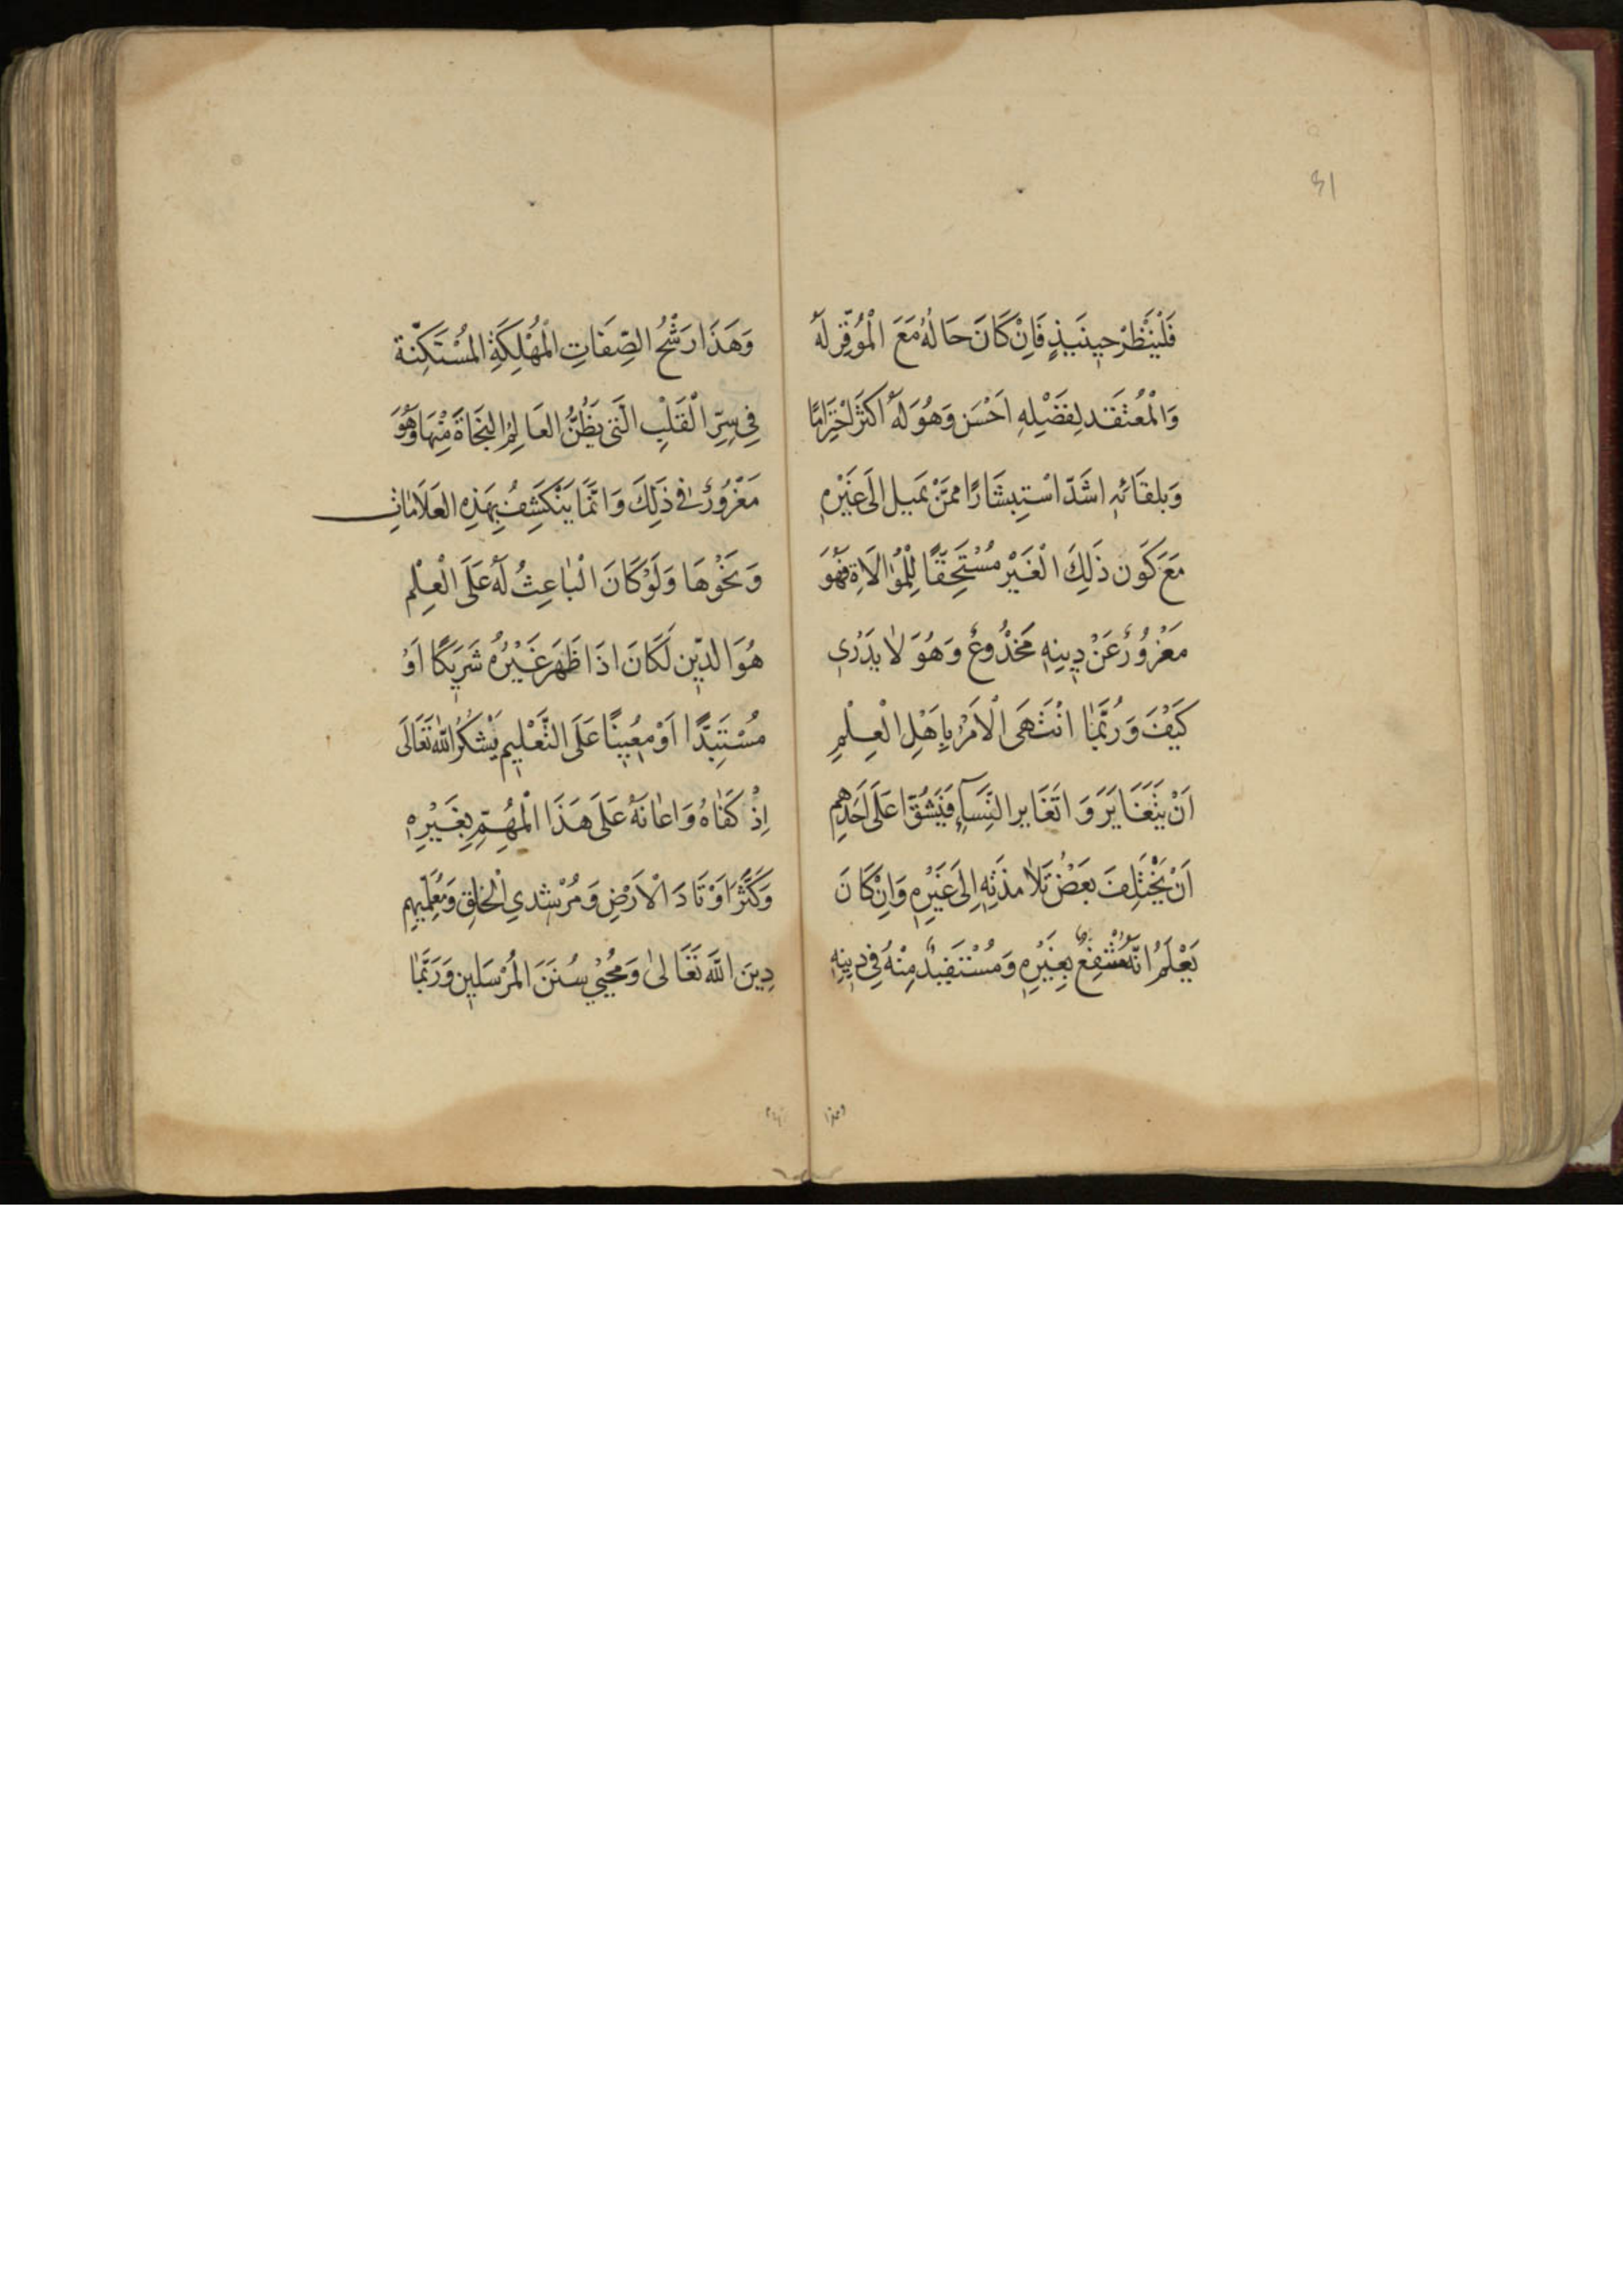 فَلْيَنْظُرْ حِينَئِذٍ فَاِنْ كَانَ حَالُهُ مَعَ الْمُوَقِّرِ لَهُ
وَالْمُعْتَقَد لِفَضْلِهِ اَحْسَن وَهُوَ لَهُ اَكْثَرَ احْتِرَامًا
وَبلقَائِهِ اشَدّ اسْتِبشَارًا ممَّنْ يَمِيل اِلَى غَيْرِهِ
مَعَ كَوْن ذَلِكَ الْغَيْر مُسْتَحِقًّا لِلْمُوالَاةِ فَهُوَ
مَغْرُورٌ عَنْ دِينِهِ مَخْدُوعٌ وَهُوَ لَا يَدْرِي
كَيْفَ وَرُبَّمَا انْتَهَى الْاَمْرُ بِاَهْلِ الْعِلْمِ
اَنْ يَتَغَايَرَوَا تَغَاير النِّسَآءِ فَيَشُقّ عَلَى اَحَدِهِمِ
اَنْ يَخْتَلِفَ بَعْضُ تَلَامِذَتِهِ اِلَى غَيْرِهِ وَاِنْ كَانَ
يَعْلَمُ اَنَّهُ مُنْتَفِعٌ بِغَيْرِهِ وَمُسْتَفِيدٌ مِنْهُ فِي دِينِهِ
وَهَذَا رَشْحُ الصِّفَاتِ الْمُهْلِكَةِ المُسْتَكِنَّة
فِي سِرِّ الْقَلْبِ الَّتِي يَظُنُّ العَالِمُ النَّجَاةَ مِنْهَا وَهُوَ
مَغْرُورٌ فِي ذَلِكَ وَاِنَّمَا يَنْكَشِفُ بِهَذِهِ العَلَامَاتِ
وَنَحْوِهَا وَلَوْ كَانَ الْبَاعِثُ لَهُ عَلَى الْعِلْمِ
هُوَ الدِّين لَكَانَ اذَا ظَهَرَ غَيْرُهُ شَرِيكًا اَوْ
مُسْتَبِدًّا اَوْ مُعِينًا عَلَى التَّعْلِيمِ يَشْكُرُ اللّٰهَ تَعَالَى
اِذْ كَفَاهُ وَاعَانَهُ عَلَى هَذَا الْمُهِمِّ بِغَيْرِهِ
وَكَثَّرَ اَوْتَادَ الْاَرْضِ وَمُرْشِدِي الْخَلْقِ وَمُعَلِّمِيهِم
دِينَ اللّٰهِ تَعَالَى وَمُحْيِيْ سُنَنَ المُرْسَلِينَ وَرُبَّمَا